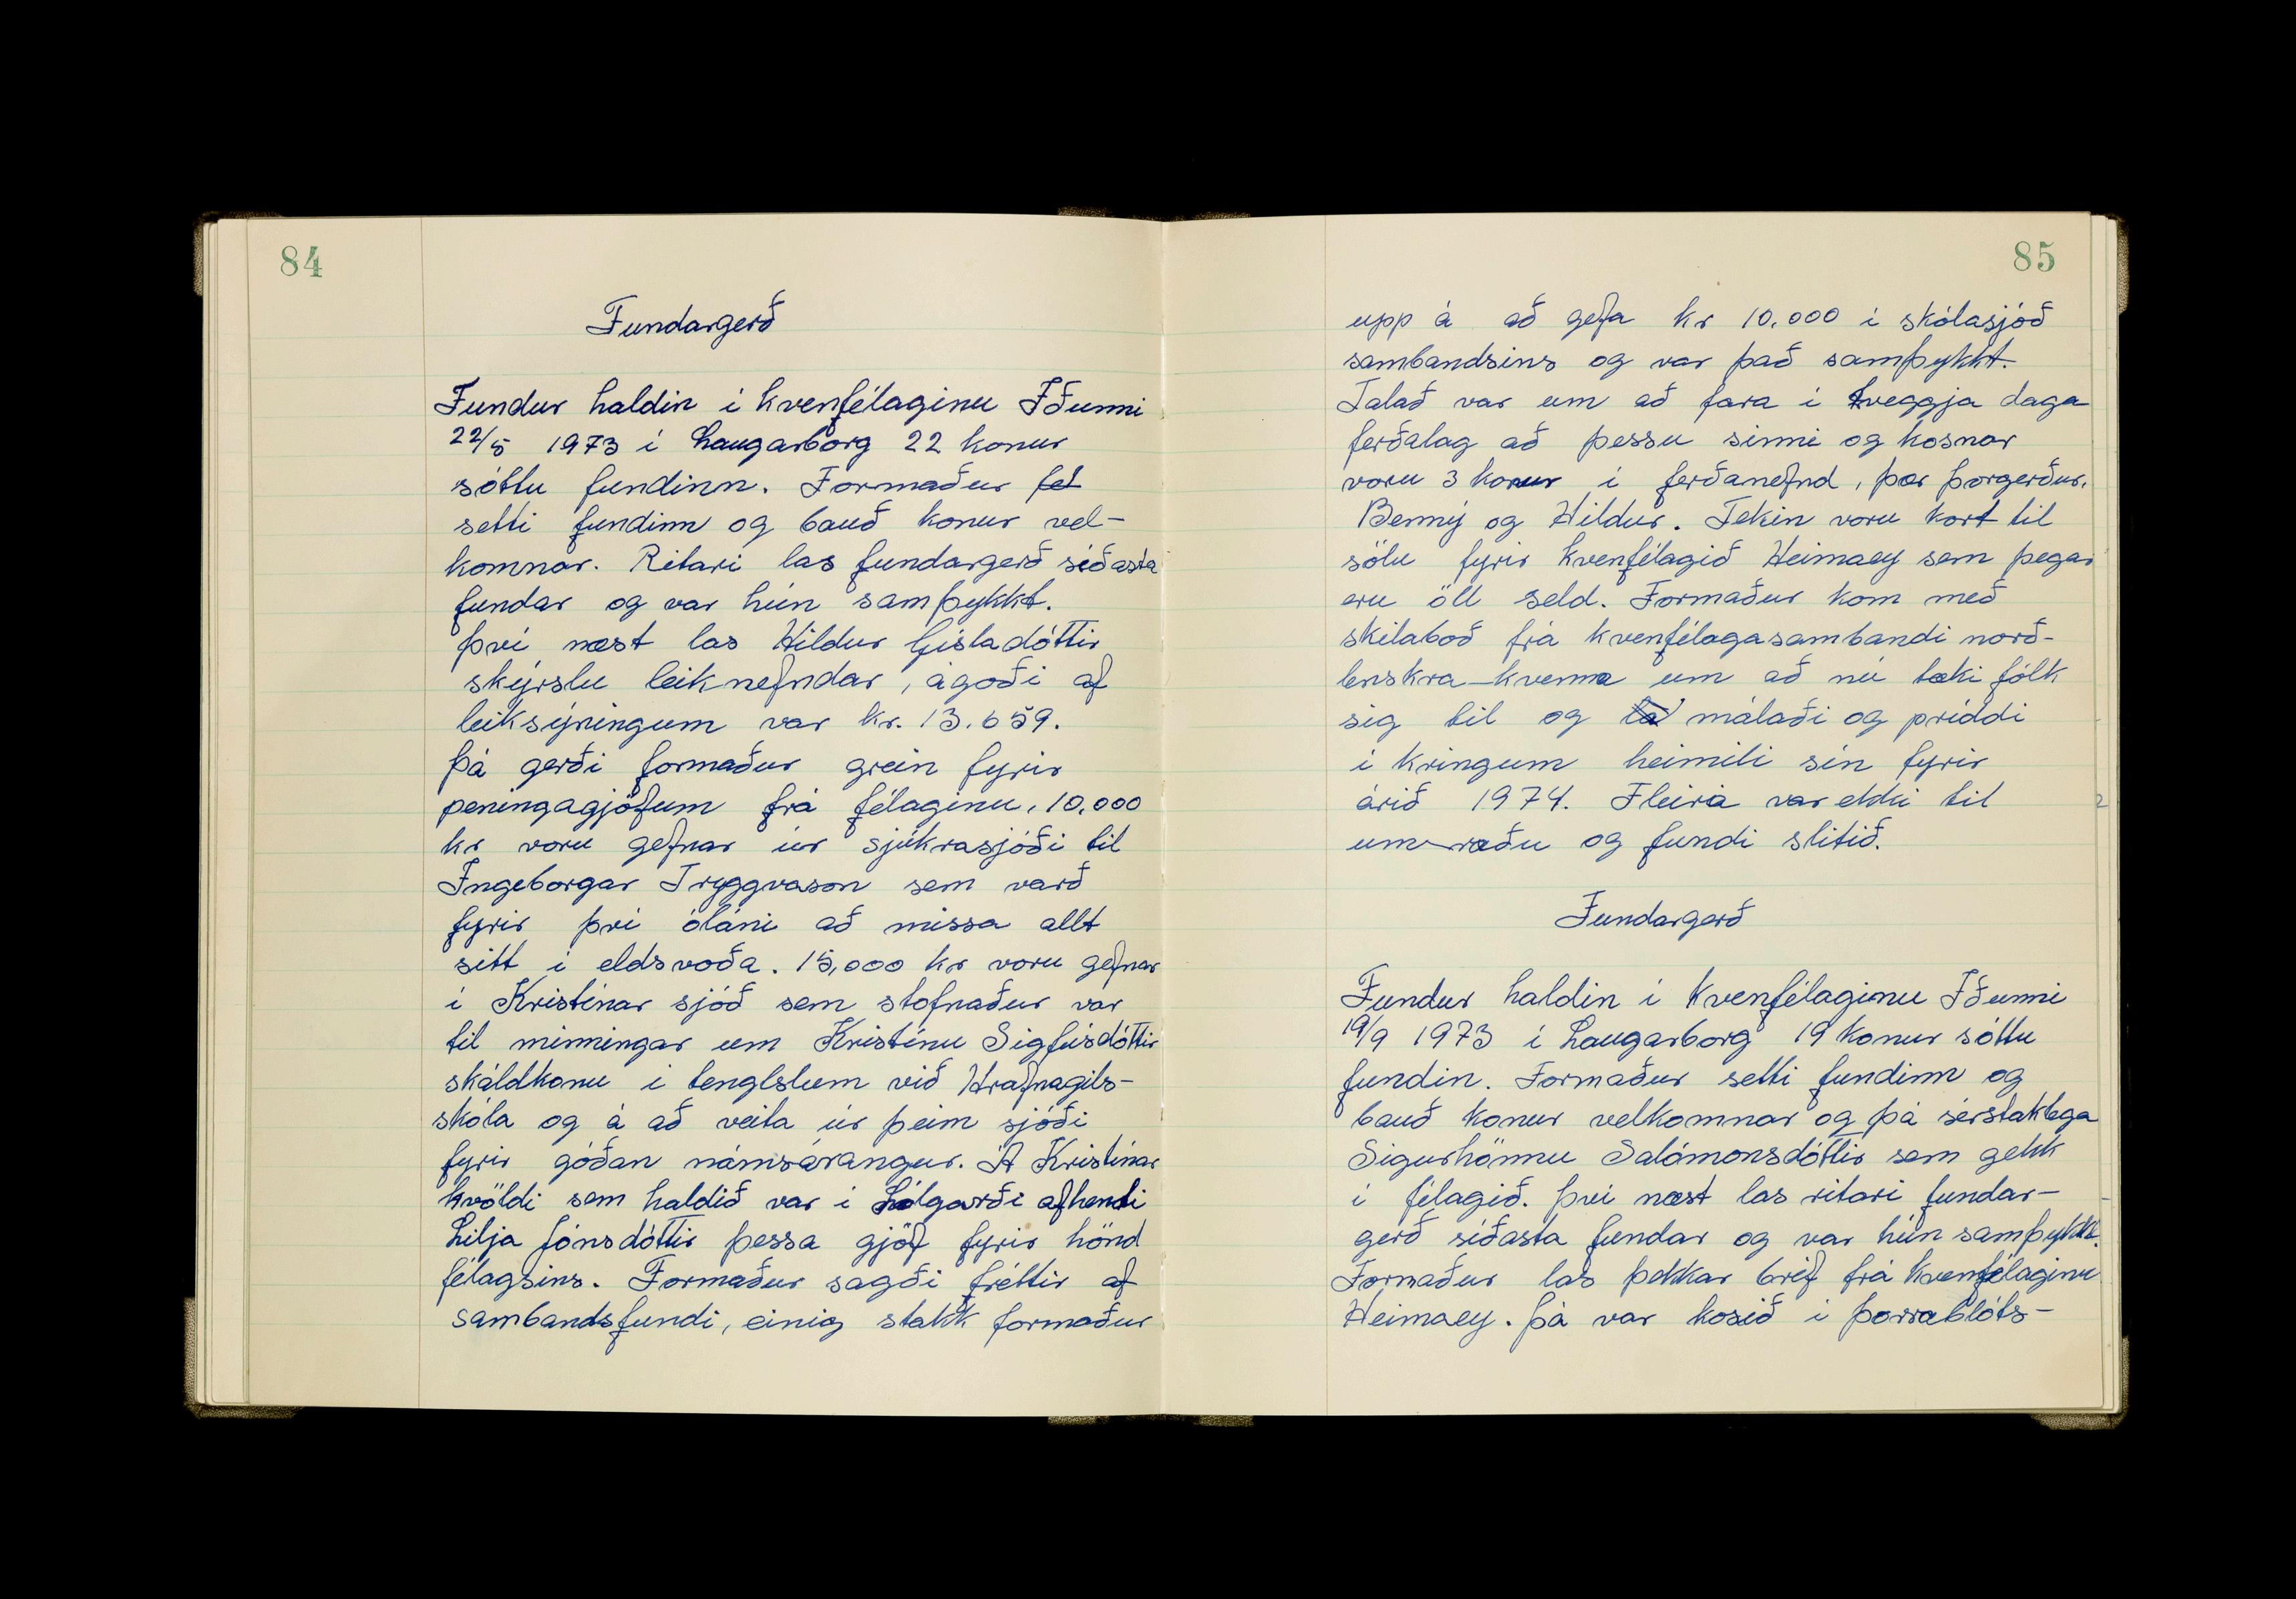 84
Fundargerð
Fundur haldin í kvenfélaginu Iðunni
22/5 1973 í Laugarborg 22 konur
sóttu fundinn. Formaður fel
setti fundinn og bauð konur vel-
komnar. Ritari las fundargerð síðasta
fundar og var hún samþykkt.
því næst las Hildur Gísladóttir
skýrslu leiknefndar, ágoði af
leiksýningum var kr. 13.659.
Þá gerði formaður grein fyrir
peningagjöfum frá félaginu, 10,000
kr voru gefnar úr sjúkrasjóði til
Ingeborgar Tryggvason sem varð
fyrir því óláni að missa allt
sitt í eldsvoða. 15,000 kr voru gefnar
í Kristínar sjóð sem stofnaður var
til minningar um Kristínu Sigfúsdóttir
skáldkonu í tenglslum við Hrafnagils-
skóla og á að veita úr þeim sjóði
fyrir góðan námsárangur. Á Kristínar
kvöldi sem haldið var í Sólgarði afhenti
Lilja Jónsdóttir þessa gjöf fyrir hönd
félagsins. Formaður sagði fréttir af
sambandsfundi, einig stakk formaður
85
upp á að gefa kr 10.000 í skólasjóð
sambandsins og var það samþykkt.
Talað var um að fara í tveggja daga
ferðalag að þessu sinni og kosnar
voru 3 konur í ferðanefnd, þær Þorgerður,
Benný og Hildur. Tekin voru kort til
sölu fyrir kvenfélagið Heimaey sem þegar
eru öll seld. Formaður kom með
skilaboð frá kvenfélagasambandi norð-
lenskra-kvenna um að nú tæki fólk
sig til og málaði og príddi
í kringum heimili sín fyrir
árið 1974. Fleira var ekki til
umræðu og fundi slitið.
Fundargerð
Fundur haldin í kvenfélaginu Iðunni
19/9 1973 í Laugarborg 19 konur sóttu
fundin. Formaður setti fundinn og
bauð konur velkomnar og þá sérstaklega
Sigurhönnu Salómonsdóttir sem gekk
í félagið. því næst las ritari fundar-
gerð síðasta fundar og var hún samþykkt.
Formaður las þekkar bréf frá kvenfélaginu
Heimaey. þá var kosið í þorrablóts-